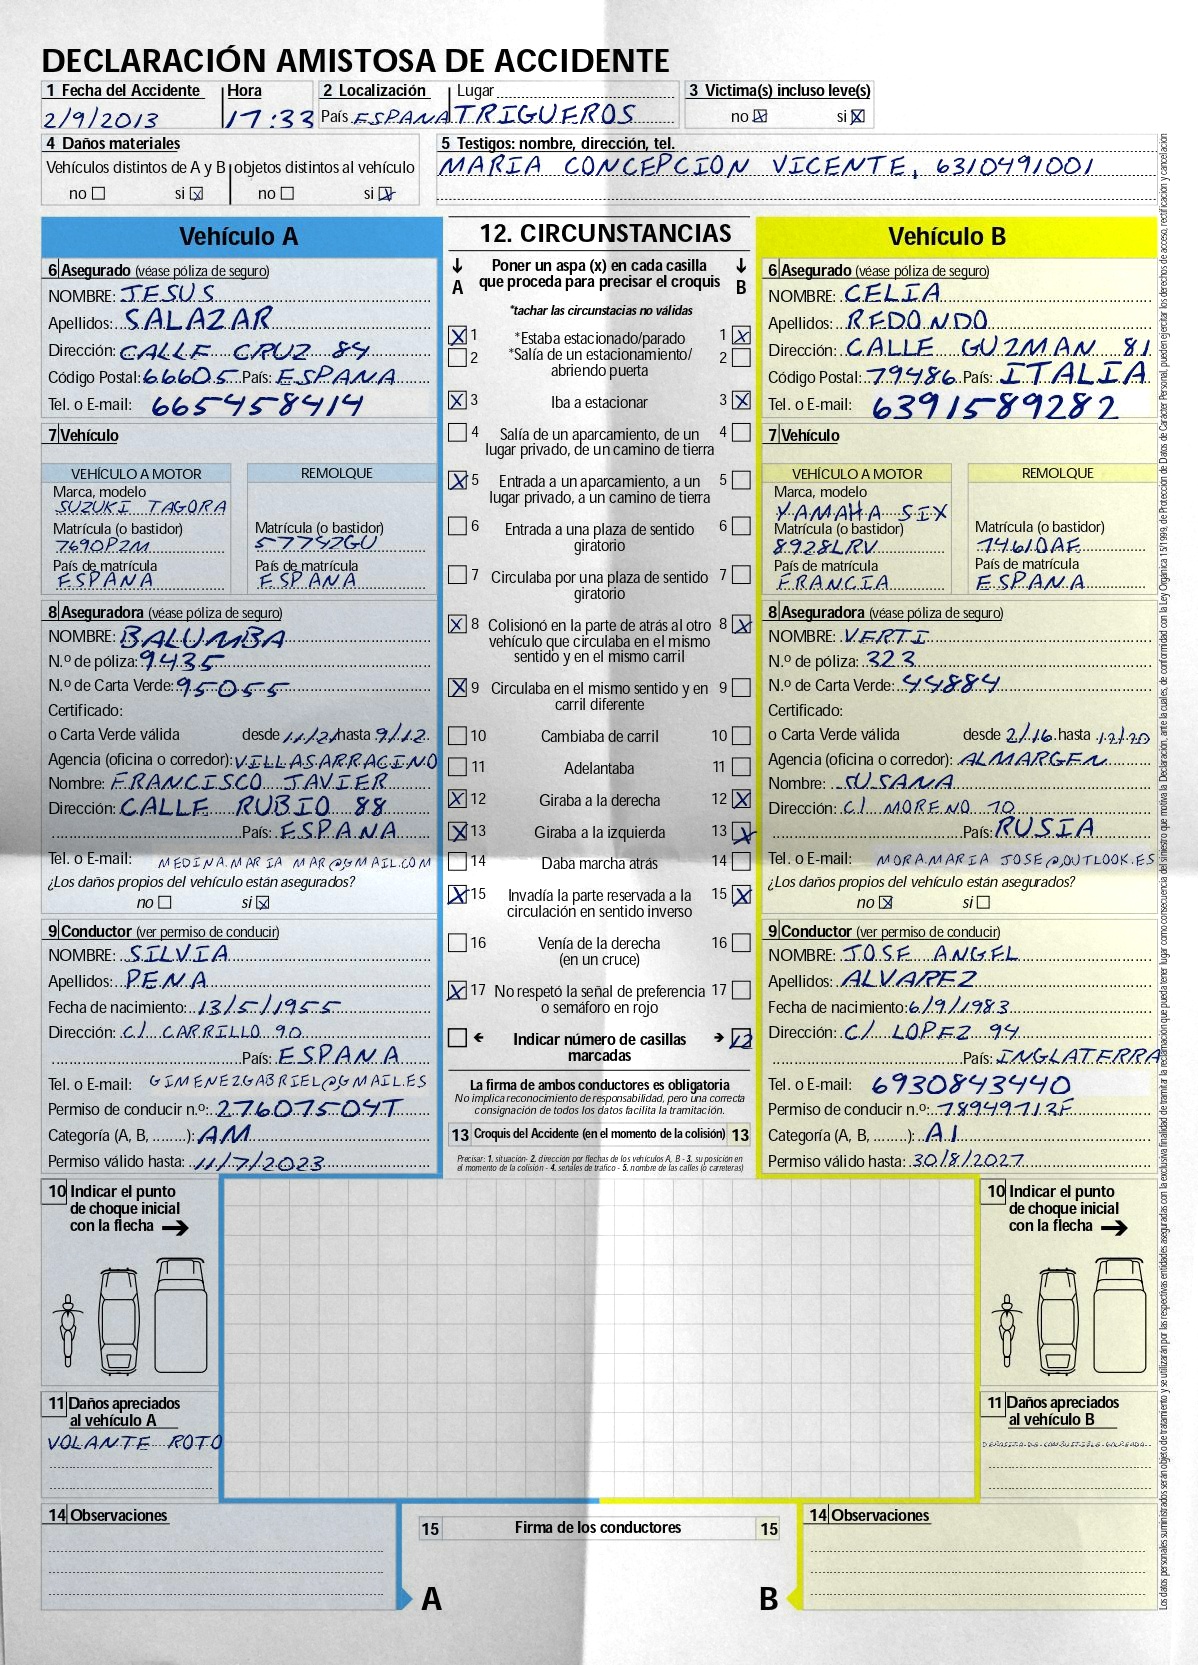 DECLARACIÓN AMISTOSA DE ACCIDENTE
1 Fecha del Accidente Hora 2 Localización Lugar 3 Victima(s) incluso leve(s)
2/9/2013 17:33 País ESPANA TRIGUEROS no si
4 Daños materiales
Vehículos distintos de A y B objetos distintos al vehículo
no si no si
5 Testigos: nombre, dirección, tel.
MARIA CONCEPCION VICENTE, 6310491001
Vehículo A
6 Asegurado (véase póliza de seguro)
NOMBRE: JESUS
Apellidos: SALAZAR
Dirección: CALLE CRUZ 84
Código Postal: 66605 País: ESPANA
Tel. o E-mail: 665458414
7 Vehículo
VEHÍCULO A MOTOR REMOLQUE
Marca, modelo
SUZUKI TAGORA
Matrícula (o bastidor) Matrícula (o bastidor)
7690PZM 57752GU
País de matrícula País de matrícula
ESPANA ESPANA
8 Aseguradora (véase póliza de seguro)
NOMBRE: BALUMBA
N.º de póliza: 9435
N.º de Carta Verde: 95055
Certificado:
o Carta Verde válida desde 11/21 hasta 9/12
Agencia (oficina o corredor): VILLASARRACINO
Nombre: FRANCISCO JAVIER
Dirección: CALLE RUBIO 88
País: ESPANA
Tel. o E-mail: MEDINA.MARIA MAR@GMAIL.COM
¿Los daños propios del vehículo están asegurados?
no si
9 Conductor (ver permiso de conducir)
NOMBRE: SILVIA
Apellidos: PENA
Fecha de nacimiento: 13/5/1955
Dirección: C/ CARRILLO 90
País: ESPANA
Tel. o E-mail: GIMENEZGABRIEL@GMAIL.ES
Permiso de conducir n.º: 27607504T
Categoría (A, B, ........): AM
Permiso válido hasta: 11/7/2023
12. CIRCUNSTANCIAS
A Poner un aspa (x) en cada casilla que proceda para precisar el croquis B
*tachar las circunstacias no válidas
1 *Estaba estacionado/parado 1
2 *Salía de un estacionamiento/ 2
abriendo puerta
3 Iba a estacionar 3
4 Salía de un aparcamiento, de un 4
lugar privado, de un camino de tierra
5 Entrada a un aparcamiento, a un 5
lugar privado, a un camino de tierra
6 Entrada a una plaza de sentido 6
giratorio
7 Circulaba por una plaza de sentido 7
giratorio
8 Colisionó en la parte de atrás al otro 8
vehículo que circulaba en el mismo
sentido y en el mismo carril
9 Circulaba en el mismo sentido y en 9
carril diferente
10 Cambiaba de carril 10
11 Adelantaba 11
12 Giraba a la derecha 12
13 Giraba a la izquierda 13
14 Daba marcha atrás 14
15 Invadía la parte reservada a la 15
circulación en sentido inverso
16 Venía de la derecha 16
(en un cruce)
17 No respetó la señal de preferencia 17
o semáforo en rojo
Indicar número de casillas 12
marcadas
La firma de ambos conductores es obligatoria
No implica reconocimiento de responsabilidad, pero una correcta
consignación de todos los datos facilita la tramitación.
13 Croquis del Accidente (en el momento de la colisión) 13
Precisar: 1. situación- 2. dirección por flechas de los vehículos A, B - 3. su posición en
el momento de la colisión - 4. señales de tráfico - 5. nombre de las calles (o carreteras)
Vehículo B
6 Asegurado (véase póliza de seguro)
NOMBRE: CELIA
Apellidos: REDONDO
Dirección: CALLE GUZMAN 81
Código Postal: 79486 País: ITALIA
Tel. o E-mail: 6391589282
7 Vehículo
VEHÍCULO A MOTOR REMOLQUE
Marca, modelo
YAMAHA SIX
Matrícula (o bastidor) Matrícula (o bastidor)
8928LRV 7461DAE
País de matrícula País de matrícula
FRANCIA ESPANA
8 Aseguradora (véase póliza de seguro)
NOMBRE: VERTI
N.º de póliza: 323
N.º de Carta Verde: 44884
Certificado:
o Carta Verde válida desde 2/16 hasta 12/20
Agencia (oficina o corredor): ALMARGEN
Nombre: SUSANA
Dirección: C/ MORENO 70
País: RUSIA
Tel. o E-mail: MORA.MARIA JOSE@OUTLOOK.ES
¿Los daños propios del vehículo están asegurados?
no si
9 Conductor (ver permiso de conducir)
NOMBRE: JOSE ANGEL
Apellidos: ALVAREZ
Fecha de nacimiento: 6/9/1983
Dirección: C/ LOPEZ 94
País: INGLATERRA
Tel. o E-mail: 6930843440
Permiso de conducir n.º: 78949713F
Categoría (A, B, ........): A1
Permiso válido hasta: 30/8/2027
10 Indicar el punto
de choque inicial
con la flecha
11 Daños apreciados
al vehículo A
VOLANTE ROTO
10 Indicar el punto
de choque inicial
con la flecha
11 Daños apreciados
al vehículo B
14 Observaciones
15 Firma de los conductores 15
A B
14 Observaciones
Los datos personales suministrados serán objeto de tratamiento y se utilizarán por las respectivas entidades aseguradas con la exclusiva finalidad de tramitar la reclamación que pueda tener lugar como consecuencia del siniestro que motiva la Declaración, ante la cuales, de conformidad con la Ley Orgánica 15/1999, de Protección de Datos de Carácter Personal, pueden ejercitar los derechos de acceso, rectificación y cancelación